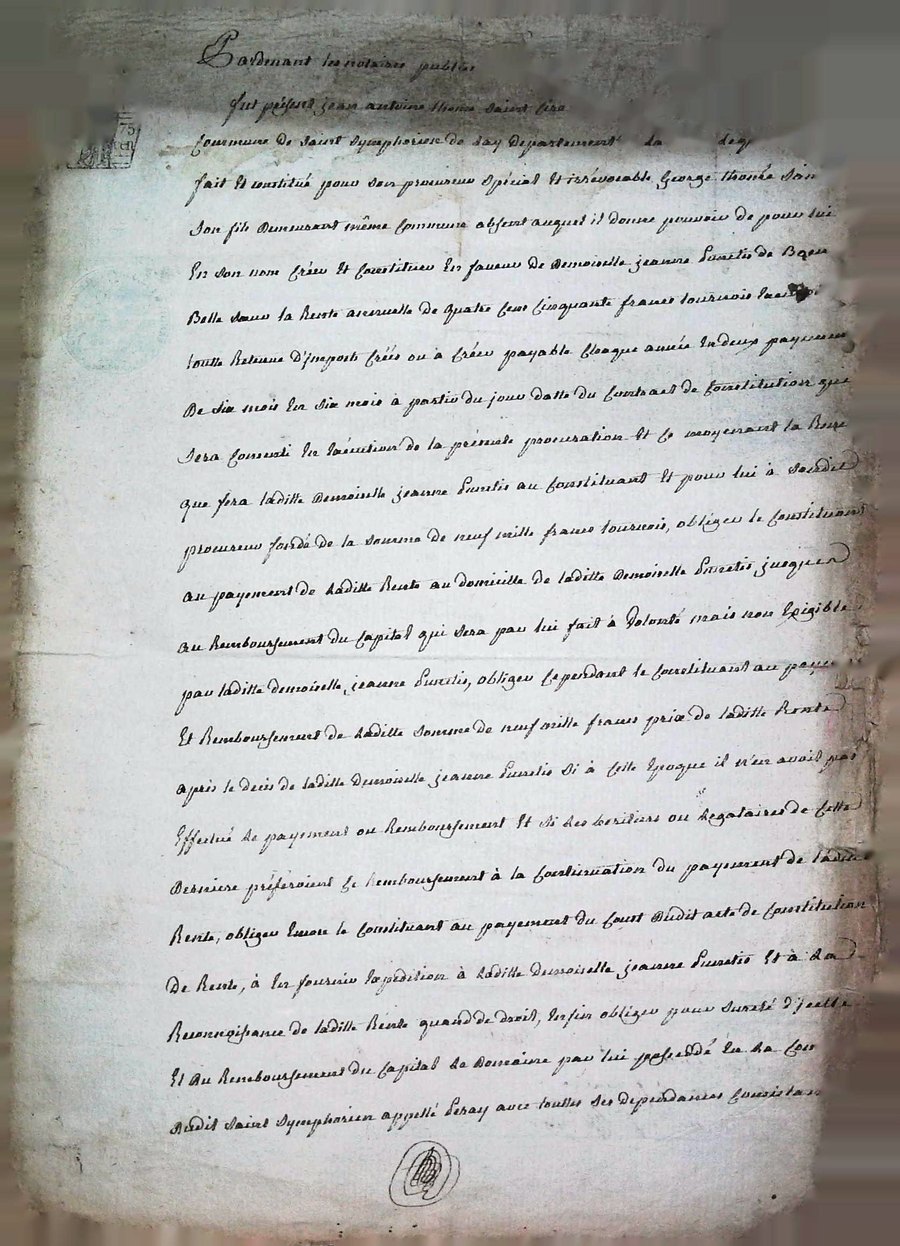 Pardevant les notaires publics
fut présent jean antoine thomé saint Cire
Commune de saint Symphorien de Lay departement de la
fait Et constitué pour son procureur spécial Et irrévocable George thomée
son fils demeurant même Commune absent auquel il donne pouvoir de pour lui
En son nom Créer Et Constituer En faveur de Demoiselle jeanne de
Belle sœur la Rente annuelle de quatre Cent Cinquante francs tournois
toutte Retenue D'imposts Créés ou à Créer payable Chaque année En deux payements
De six mois En six mois à partir du jour datte du Contract de Constitution qui
sera Consenti En Exécution de la présente procuration Et Ce moyennant la
que fera laditte Demoiselle jeanne au Constituant Et pour lui à Sondit
procureur fondé de la somme de neuf mille francs tournois, obliger le Constituant
au payement de laditte Rente au domicille de laditte Demoiselle jusques
au Remboursement du Capital qui sera par lui fait à Volonté mais non Exigible
par laditte demoiselle jeanne obliger Cependant le Constituant au
Et Remboursement de laditte somme de neuf mille francs prix de laditte Rente
après le décès de laditte Demoiselle jeanne si à Cette Epoque il n'en avoit pas
Effectué le payement ou Remboursement Et si les heritiers ou Legataires de Cette
Derniere préféroient le Remboursement à la Continuation du payement de laditte
Rente, obliger Encore le Constituant au payement du Cout Dudit acte de Constitution
de Rente, à En fournir Expedition à laditte demoiselle jeanne Et à La
Reconnoissance de laditte Rente quand de droit, Enfin obliger pour sureté d'jcelle
Et du Remboursement du Capital Le Domaine par lui possédé En La
Dudit Saint Symphorien appellé avec touttes Ses dependances